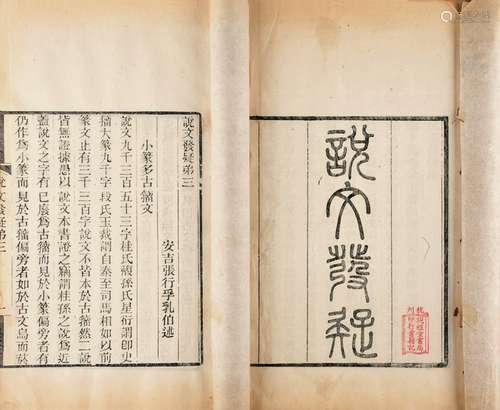 說文發疑
說文發疑弟三
安吉張行孚乳伯述
小篆多古籀文
說文九千三百五十三字桂氏馥孫氏星衍謂卽史
籀大篆九千字段氏玉裁謂自秦至司馬相如以前
篆文止有三千三百字說文不皆本於古籀然二說
皆無證據愚以說文本書證之竊謂桂孫之說爲近
蓋說文之字有已廢爲古籀而見於小篆偏旁者有
仍作爲小篆而見於古籀偏旁者如於古文烏而菸
說文發疑弟三